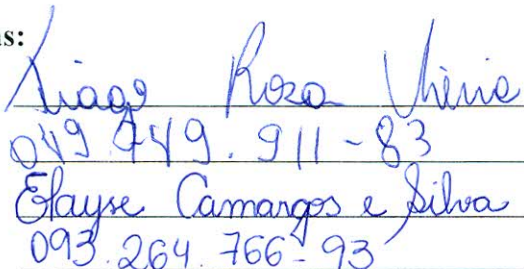 as:
Tiago Rosa Vieira
049.749.911-83
Elayse Camargos e Silva
093.264.766-93